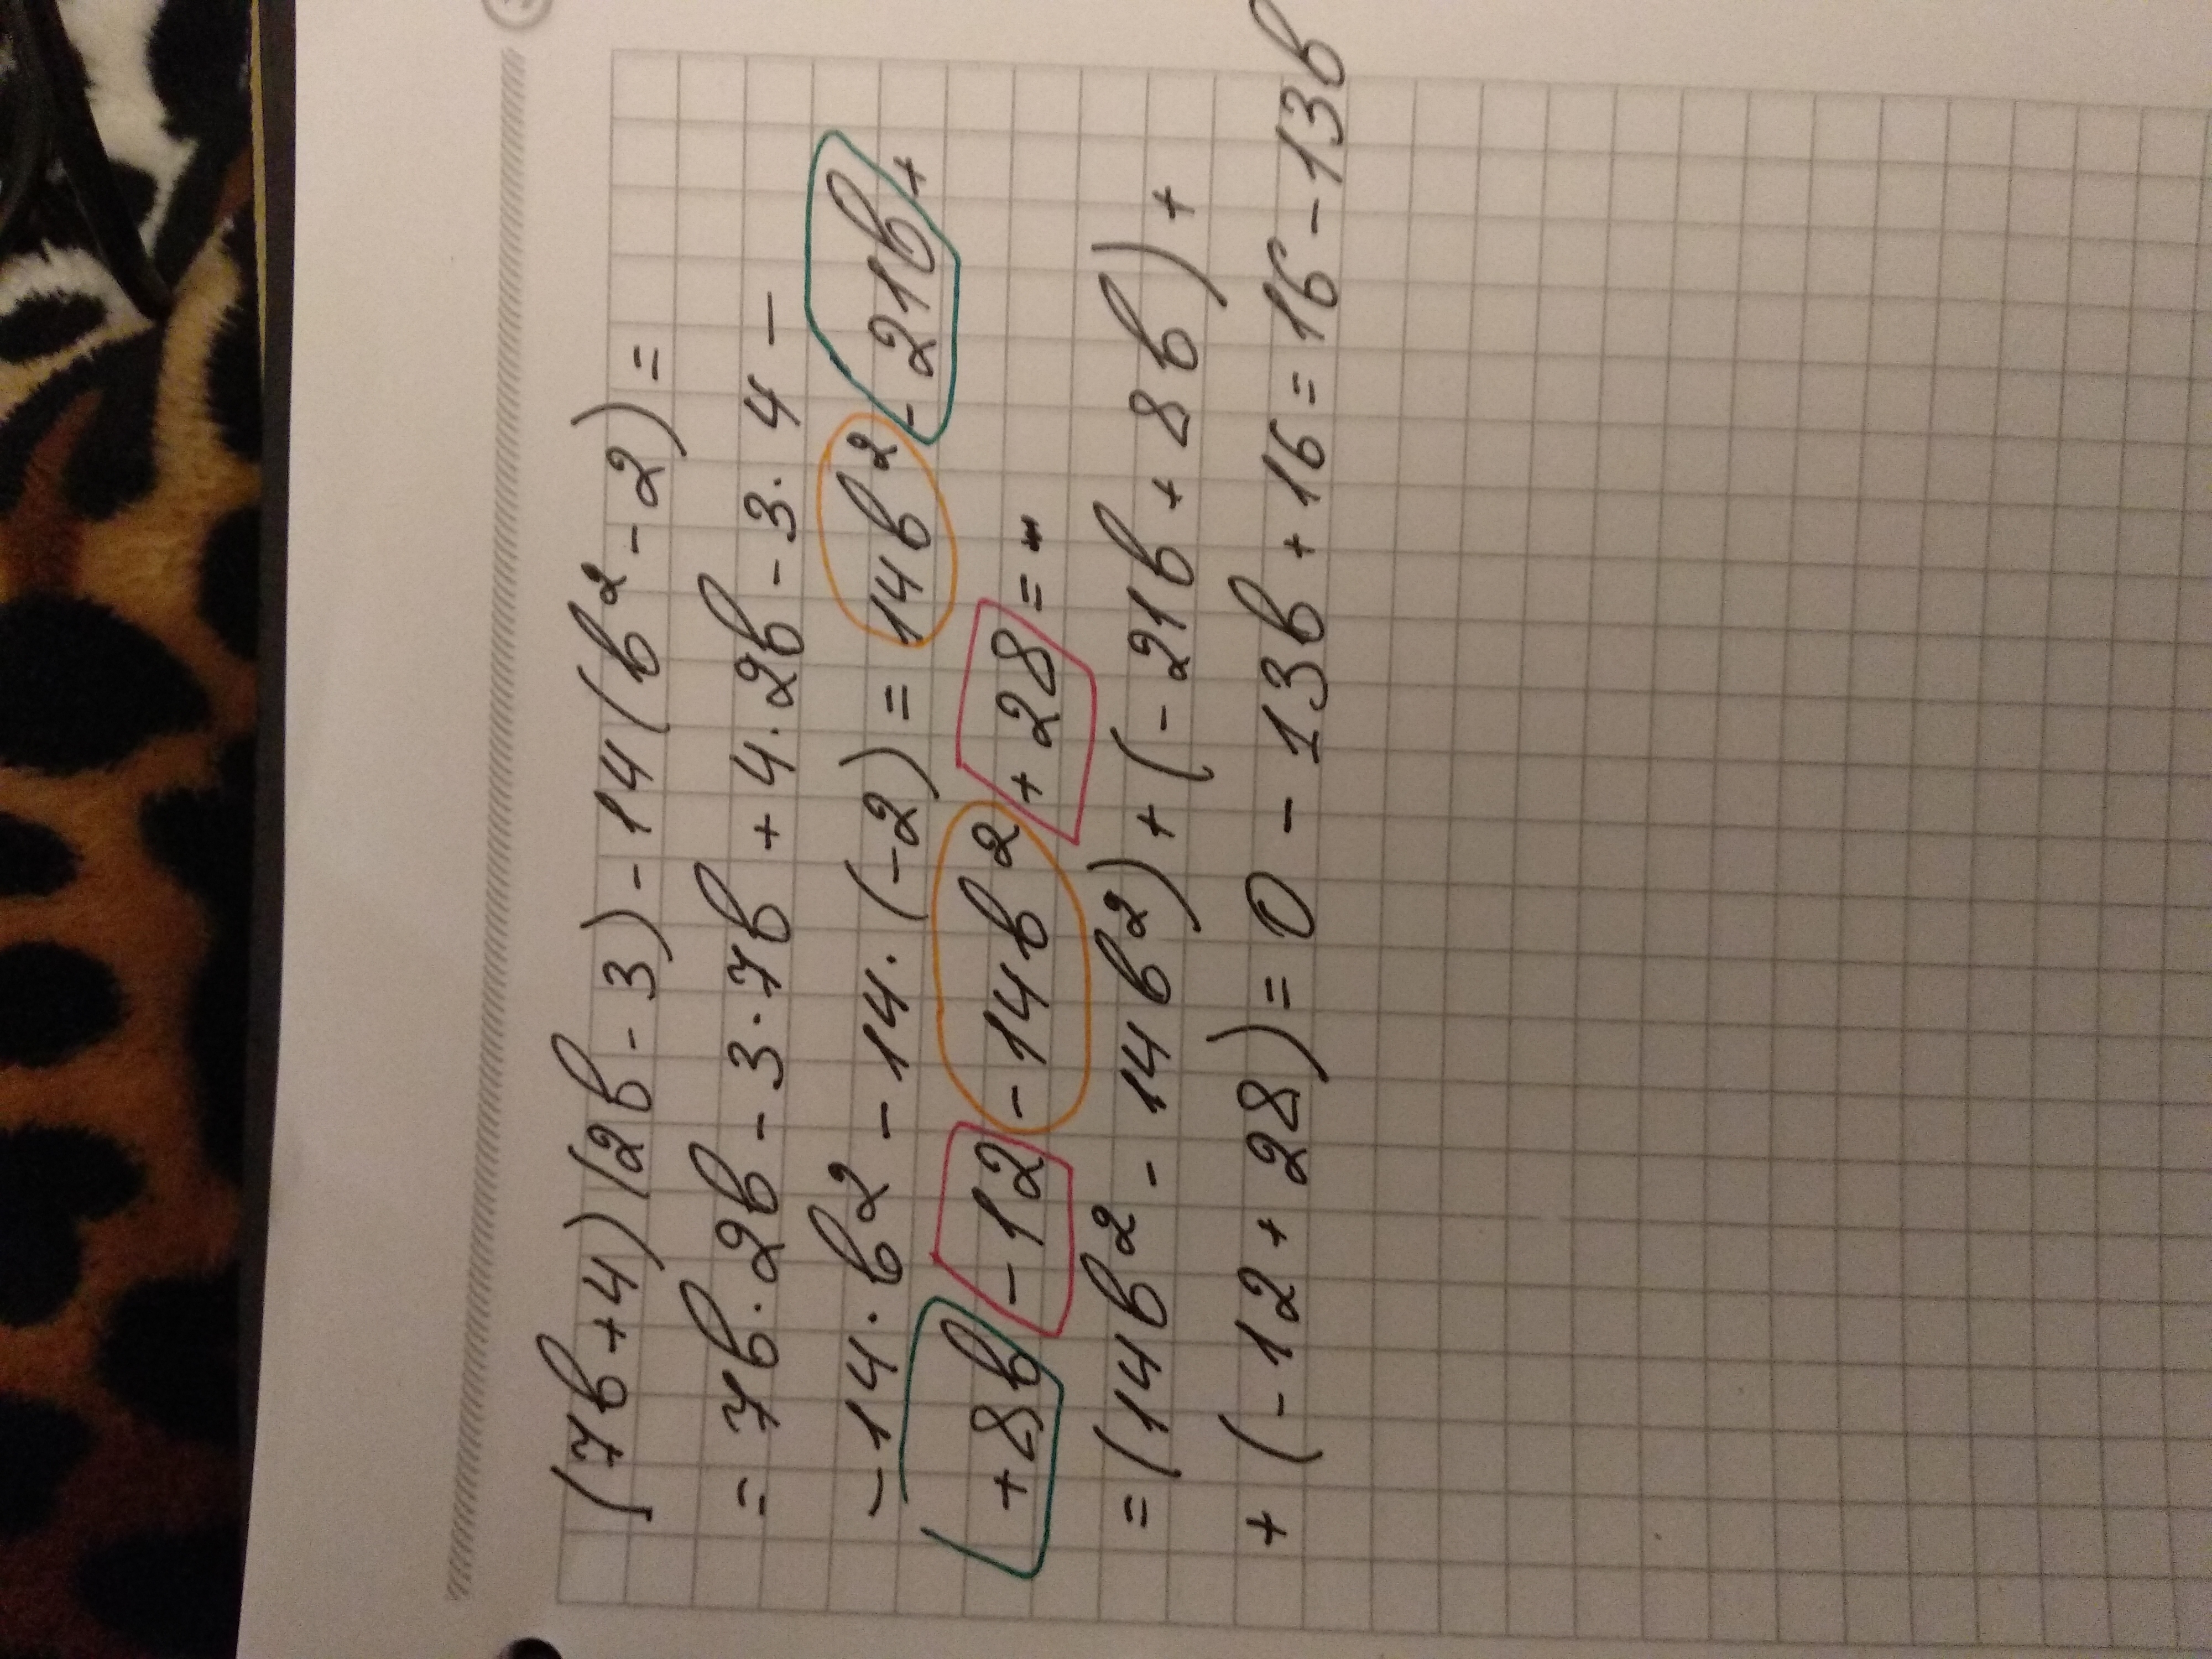 (7b+4)(2b-3)-14(b²-2)=
=7b·2b-3·7b+4·2b-3·4-
-14·b²-14·(-2)=14b²-21b+
+8b-12-14b²+28=
=(14b²-14b²)+(-21b+8b)+
+(-12+28)=0-13b+16=16-13b